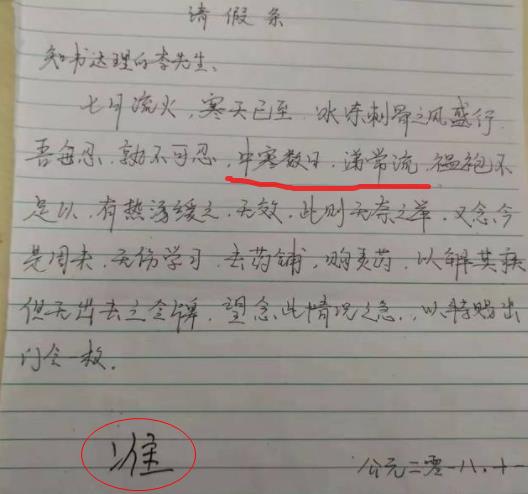 请假条
知书达理的李先生、
七月流火，寒天已至，冰冻刺骨之风盛行
吾每忍，孰不可忍，中寒数日，涕常流，缊袍不
足以，有热汤缓之，无效，此则无奈之举，又念今
是周末，无伤学习，去药铺，购买药，以解其疾
但无出去之令牌，望念此情况之急，以特赐出
门令一枚．
准
公元二零一八．十一